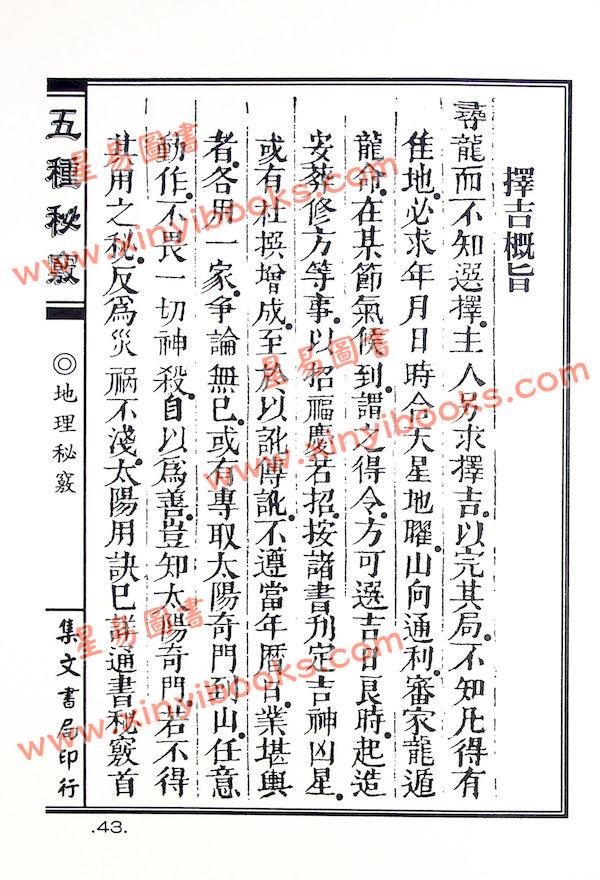 擇吉概旨
尋龍而不知選擇主人另求擇吉以完其局不知凡得有
佳地必求年月日時合天星地曜山向通利審家龍遁
龍命在某節氣候到謂之得令方可選吉日良時起造
安葬修方等事以招福慶若招按諸書刊定吉神凶星
或有杜撰增成至於以訛傳訛不遵當年曆日業堪輿
者各用一家爭論無已或有專取太陽奇門到山任意
動作不畏一切神殺自以為善豈知太陽奇門若不得
其用之秘反為災禍不淺太陽用訣已詳通書秘竅首
五種秘竅
◎地理秘竅
集文書局印行
.43.
星易圖書
www.xinyibooks.com
星易圖書
www.xinyibooks.com
星易圖書
www.xinyibooks.com